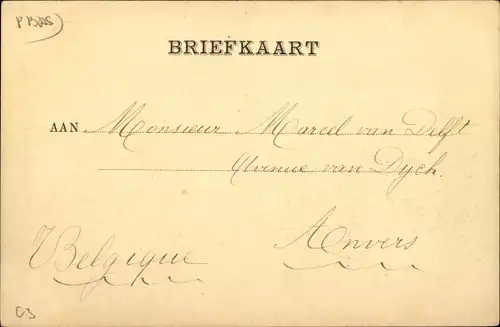 P BUS
BRIEFKAART
AAN Monsieur Marcel van Delft
Avenue van Dyck.
Anvers
Belgique
C3